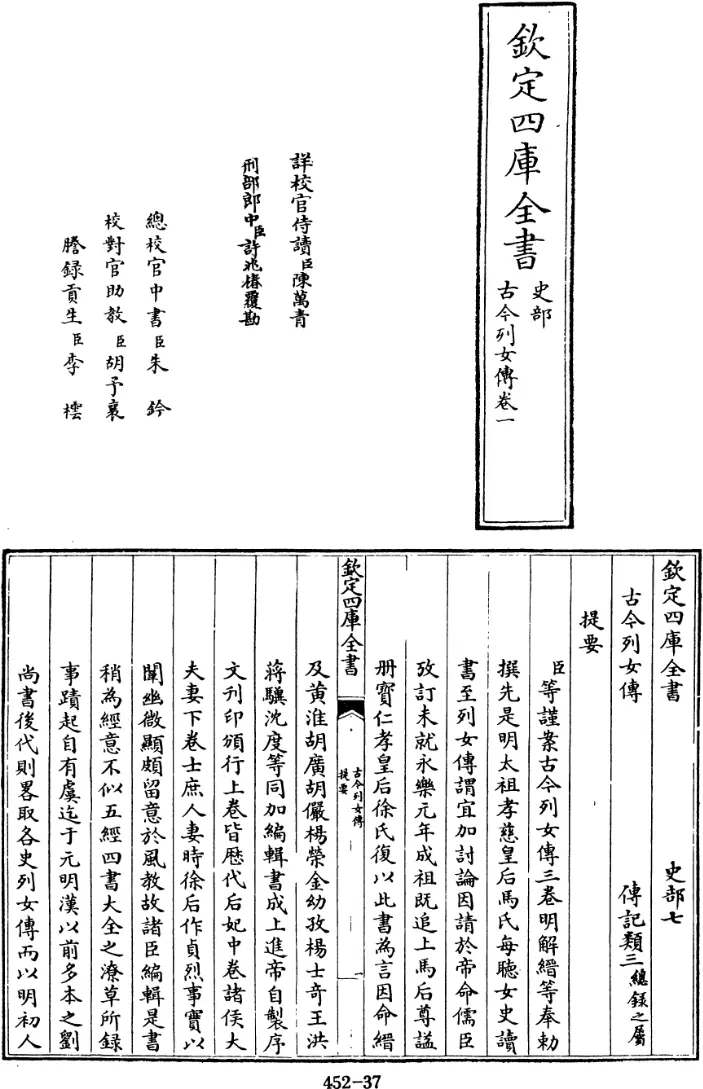 欽定四庫全書
史部
古今列女傳卷一
詳校官侍讀臣陳萬青
刑部郎中臣許兆椿覆勘
總校官中書臣朱鈐
校對官助教臣胡予襄
謄録貢生臣李橒
欽定四庫全書 史部七
古今列女傳 傳記類三總錄之屬
提要
臣等謹案古今列女傳三卷明解縉等奉勅
撰先是明太祖孝慈皇后馬氏每聽女史讀
書至列女傳謂宜加討論因請於帝命儒臣
攷訂未就永樂元年成祖既追上馬后尊諡
册寶仁孝皇后徐氏復以此書為言因命縉
欽定四庫全書
古今列女傳
提要
一
及黄淮胡廣胡儼楊榮金幼孜楊士奇王洪
蔣驥沈度等同加編輯書成上進帝自製序
文刊印頒行上卷皆歴代后妃中卷諸侯大
夫妻下卷士庶人妻時徐后作貞烈事實以
闡幽微顯頗留意於風教故諸臣編輯是書
稍為經意不似五經四書大全之潦草所録
事蹟起自有虞迄于元明漢以前多本之劉
尚書後代則畧取各史列女傳而以明初人
452-37